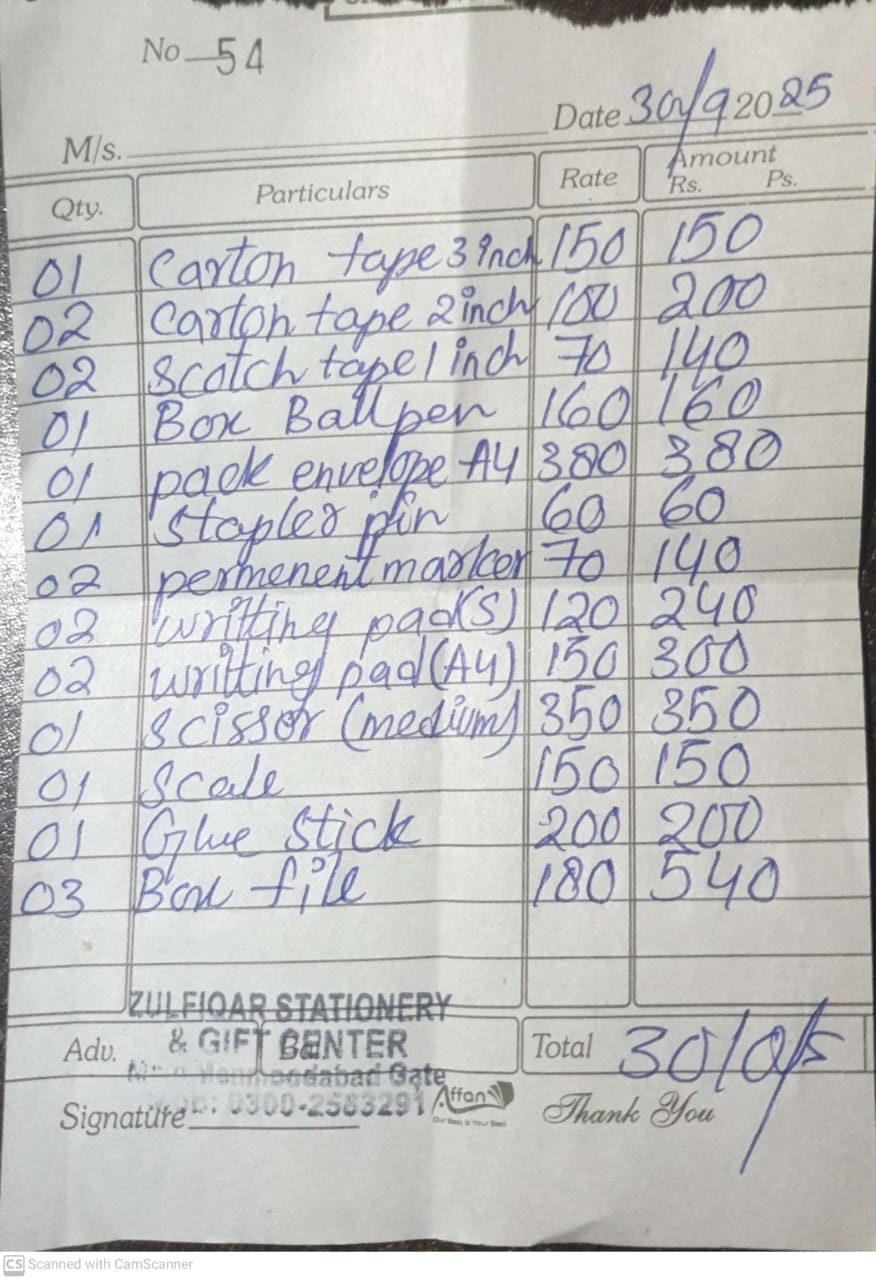 No 54
Date 30/9 2025
M/s.
Qty. Particulars Rate Amount
Rs. Ps.
01 Carton tape 3 inch 150 150
02 Carton tape 2 inch 100 200
02 Scotch tape 1 inch 70 140
01 Box Ball pen 160 160
01 pack envelope A4 380 380
01 Stapler pin 60 60
02 permenent marker 70 140
02 writting pad(S) 120 240
02 writting pad(A4) 150 300
01 Scissor (medium) 350 350
01 Scale 150 150
01 Glue Stick 200 200
03 Box file 180 540
ZULFIQAR STATIONERY
& GIFT CENTER
Adv. Total 3010/=
Gate
0300-2583291
Signature Affan Thank You
Our Best is Your Best
CS Scanned with CamScanner